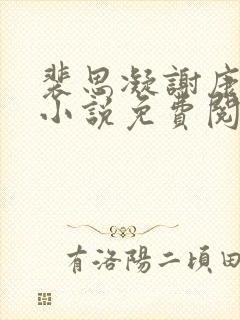 裴思凝謝康
小說免費閱
有洛陽二頃田